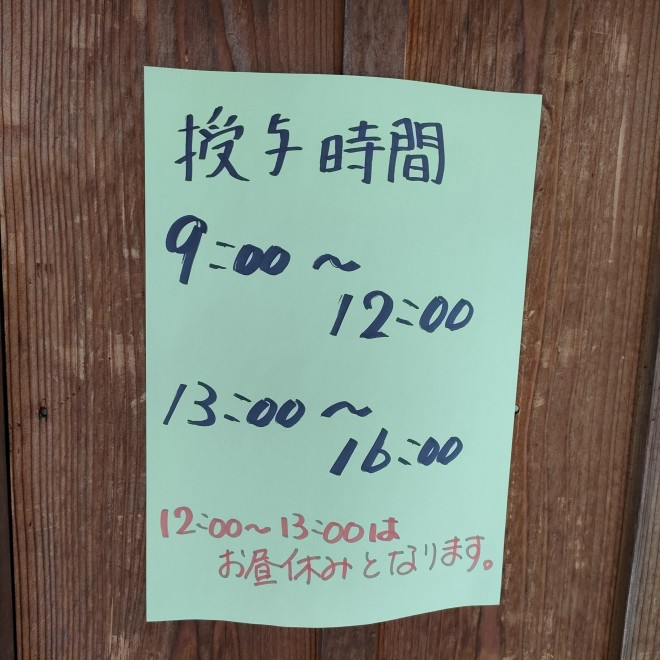 授与時間
9:00〜
12:00
13:00〜
16:00
12:00〜13:00は
お昼休みとなります。